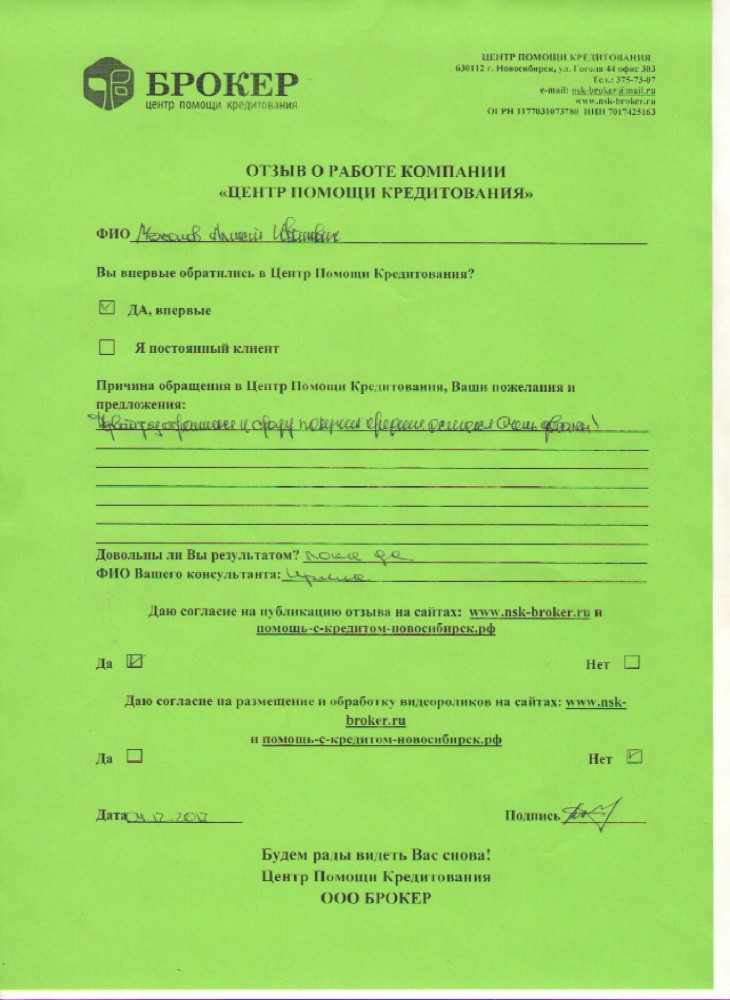 БРОКЕР
центр помощи кредитования
ЦЕНТР ПОМОЩИ КРЕДИТОВАНИЯ
630112 г. Новосибирск, ул. Гоголя 44 офис 303
Тел.: 375-73-07
e-mail: nsk-broker@mail.ru
www.nsk-broker.ru
ОГРН 1177031073780 ИНН 7017425163
ОТЗЫВ О РАБОТЕ КОМПАНИИ
«ЦЕНТР ПОМОЩИ КРЕДИТОВАНИЯ»
ФИО
Вы впервые обратились в Центр Помощи Кредитования?
ДА, впервые
Я постоянный клиент
Причина обращения в Центр Помощи Кредитования, Ваши пожелания и
предложения:
Довольны ли Вы результатом? пока да
ФИО Вашего консультанта: Ирина
Даю согласие на публикацию отзыва на сайтах: www.nsk-broker.ru и
помощь-с-кредитом-новосибирск.рф
Да Нет
Даю согласие на размещение и обработку видеороликов на сайтах: www.nsk-
broker.ru
и помощь-с-кредитом-новосибирск.рф
Да Нет
Дата Подпись
Будем рады видеть Вас снова!
Центр Помощи Кредитования
ООО БРОКЕР